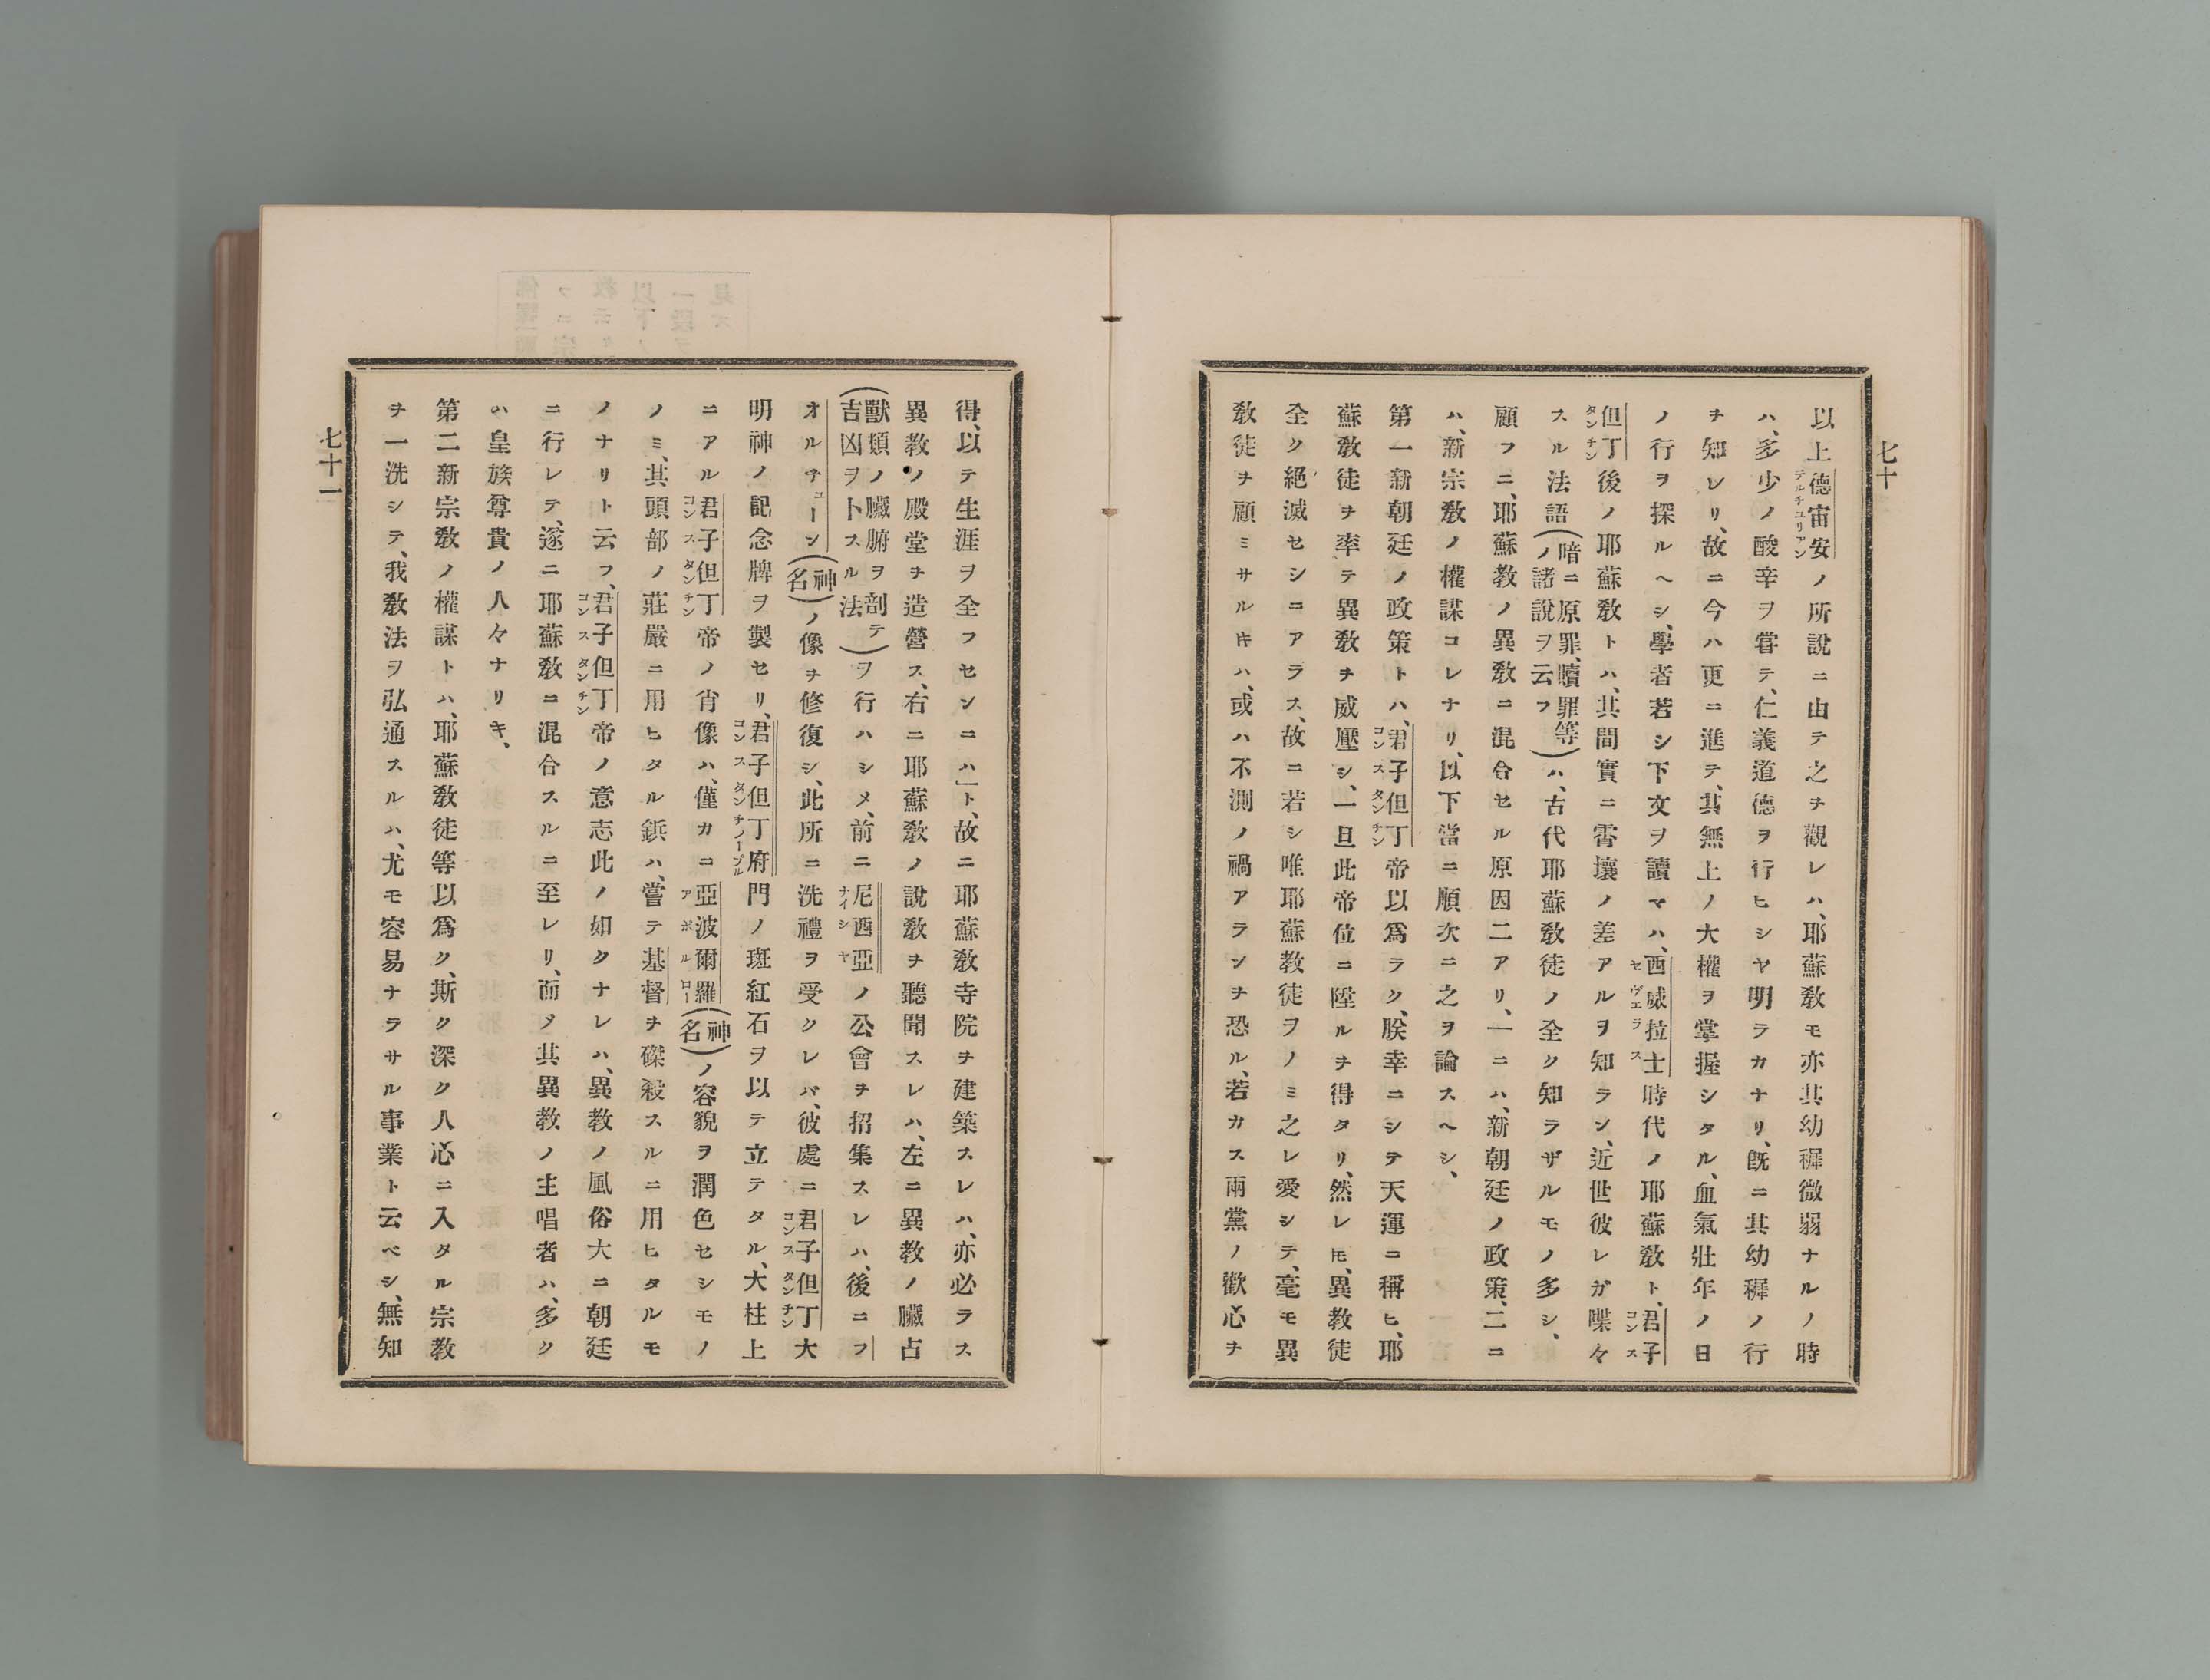 七十
以上德宙安ノ所說ニ由テ之ヲ觀レハ、耶蘇敎モ亦其幼穉微弱ナルノ時
デルチユリアン
ハ、多少ノ酸辛ヲ甞テ、仁義道德ヲ行ヒシヤ明ラカナリ、旣ニ其幼穉ノ行
ヲ知レリ、故ニ今ハ更ニ進テ、其無上ノ大權ヲ掌握シタル、血氣壯年ノ日
ノ行ヲ探ルヘシ、學者若シ下文ヲ讀マハ、西威拉士時代ノ耶蘇敎ト、君子
セヴエラス
コンス
但丁後ノ耶蘇敎トハ、其間實ニ霄壤ノ差アルヲ知ラン、近世彼レガ喋々
タンチン
スル法語(暗ニ原罪、贖罪等ノ諸說ヲ云フ)ハ、古代耶蘇敎徒ノ全ク知ラザルモノ多シ、
顧フニ、耶蘇敎ノ異敎ニ混合セル原因二アリ、一ニハ、新朝廷ノ政策、二ニ
ハ、新宗敎ノ權謀コレナリ、以下當ニ順次ニ之ヲ論スヘシ、
第一新朝廷ノ政策トハ、君子但丁帝以爲ラク、朕幸ニシテ天運ニ稱ヒ、耶
コンスタンチン
蘇敎徒ヲ率テ異敎ヲ威壓シ、一旦此帝位ニ陞ルヲ得タリ、然レ𪜈、異敎徒
全ク絕滅セシニアラス、故ニ若シ唯耶蘇敎徒ヲノミ之レ愛シテ、毫モ異
敎徒ヲ顧ミサルキハ、或ハ不測ノ禍アランヲ恐ル、若カス兩黨ノ歡心ヲ
得、以テ生涯ヲ全フセンニハ」ト、故ニ耶蘇敎寺院ヲ建築スレハ、亦必ラス
異敎ノ殿堂ヲ造營ス、右ニ耶蘇敎ノ說敎ヲ聽聞スレハ、左ニ異敎ノ臟占
(獸類ノ臟腑ヲ剖テ吉凶ヲトスル法)ヲ行ハシメ、前ニ尼西亞ノ公會ヲ招集スレハ、後ニフ
ナイシヤ
オルチューン(神名)ノ像ヲ修復シ、此所ニ洗禮ヲ受クレバ、彼處ニ君子但丁大
コンスタンチン
明神ノ記念牌ヲ製セリ、君子但丁府門ノ斑紅石ヲ以テ立テタル、大柱上
コンスタンチノープル
ニアル君子但丁帝ノ肖像ハ、僅カニ亞波爾羅(神名)ノ容貌ヲ潤色セシモノ
コンスタンチン
アポルロー
ノミ、其頭部ノ莊嚴ニ用ヒタル鋲ハ、嘗テ基督ヲ磔殺スルニ用ヒタルモ
ノナリト云フ、君子但丁帝ノ意志此ノ如クナレハ、異敎ノ風俗大ニ朝廷
コンスタンチン
ニ行レテ、遂ニ耶蘇敎ニ混合スルニ至レリ、而メ其異敎ノ主唱者ハ、多ク
ハ皇族尊貴ノ人々ナリキ、
第二新宗敎ノ權謀トハ、耶蘇敎徒等以爲ク、斯ク深ク人心ニ入タル宗敎
ヲ一洗シテ、我敎法ヲ弘通スルハ、尤モ容易ナラサル事業ト云ベシ、無知
七十一